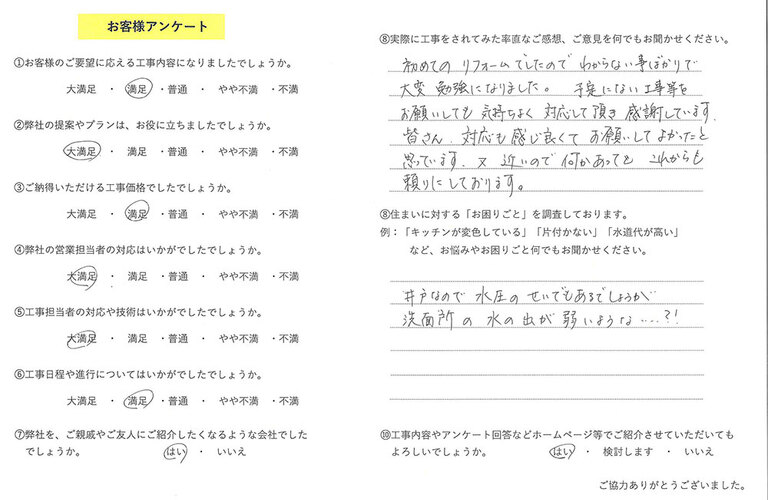 お客様アンケート
①お客様のご要望に応える工事内容になりましたでしょうか。
大満足 ・ 満足 ・普通 ・ やや不満 ・不満
②弊社の提案やプランは、お役に立ちましたでしょうか。
大満足 ・ 満足 ・普通 ・ やや不満 ・不満
③ご納得いただける工事価格でしたでしょうか。
大満足 ・ 満足 ・普通 ・ やや不満 ・不満
④弊社の営業担当者の対応はいかがでしたでしょうか。
大満足 ・ 満足 ・普通 ・ やや不満 ・不満
⑤工事担当者の対応や技術はいかがでしたでしょうか。
大満足 ・ 満足 ・普通 ・ やや不満 ・不満
⑥工事日程や進行についてはいかがでしたでしょうか。
大満足 ・ 満足 ・普通 ・ やや不満 ・不満
⑦弊社を、ご親戚やご友人にご紹介したくなるような会社でした
でしょうか。 はい ・ いいえ
⑧実際に工事をされてみた率直なご感想、ご意見を何でもお聞かせください。
初めての リフォームでしたので わからない事ばかりで
大変 勉強になりました。 予定にない工事等を
お願いしても 気持ちよく 対応して頂き 感謝しています。
皆さん 対応も感じ良くて お願いしてよかったと
思っています。又 近いので何かあっても これからも
頼りにしております。
⑧住まいに対する「お困りごと」を調査しております。
例：「キッチンが変色している」「片付かない」「水道代が高い」
など、お悩みやお困りごと何でもお聞かせください。
井戸なので 水圧の せいでもあるでしょうが
洗面所 の 水の出が 弱いような……?!
⑩工事内容やアンケート回答などホームページ等でご紹介させていただいても
よろしいでしょうか。 はい ・ 検討します ・ いいえ
ご協力ありがとうございました。